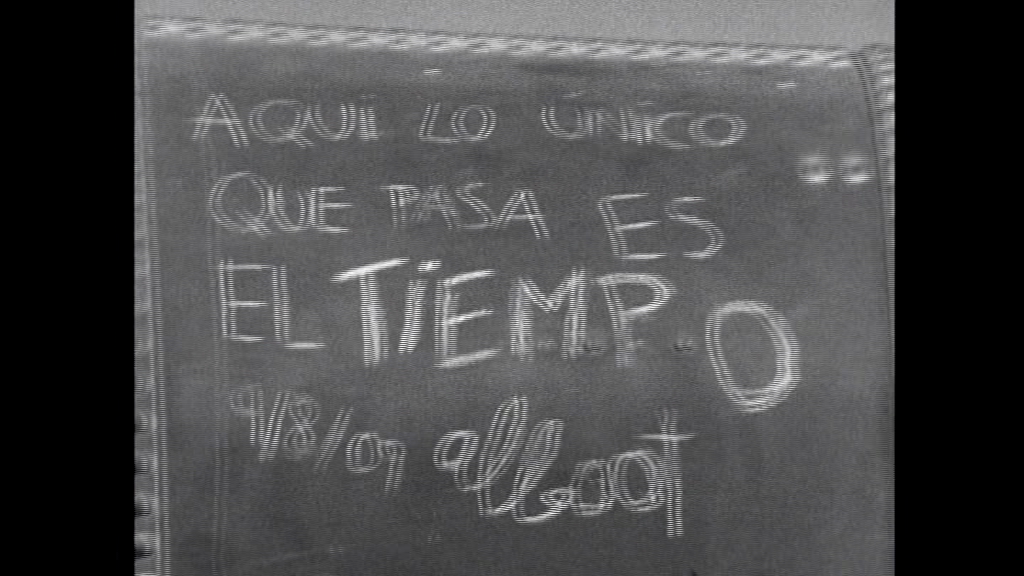 AQUI LO ÚNICO
QUE PASA ES
EL TIEMPO
9/8/09